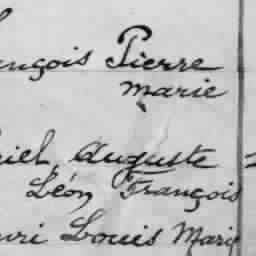 ançois Pierre
marie
riel, Auguste
Léon François
nri Louis Marie